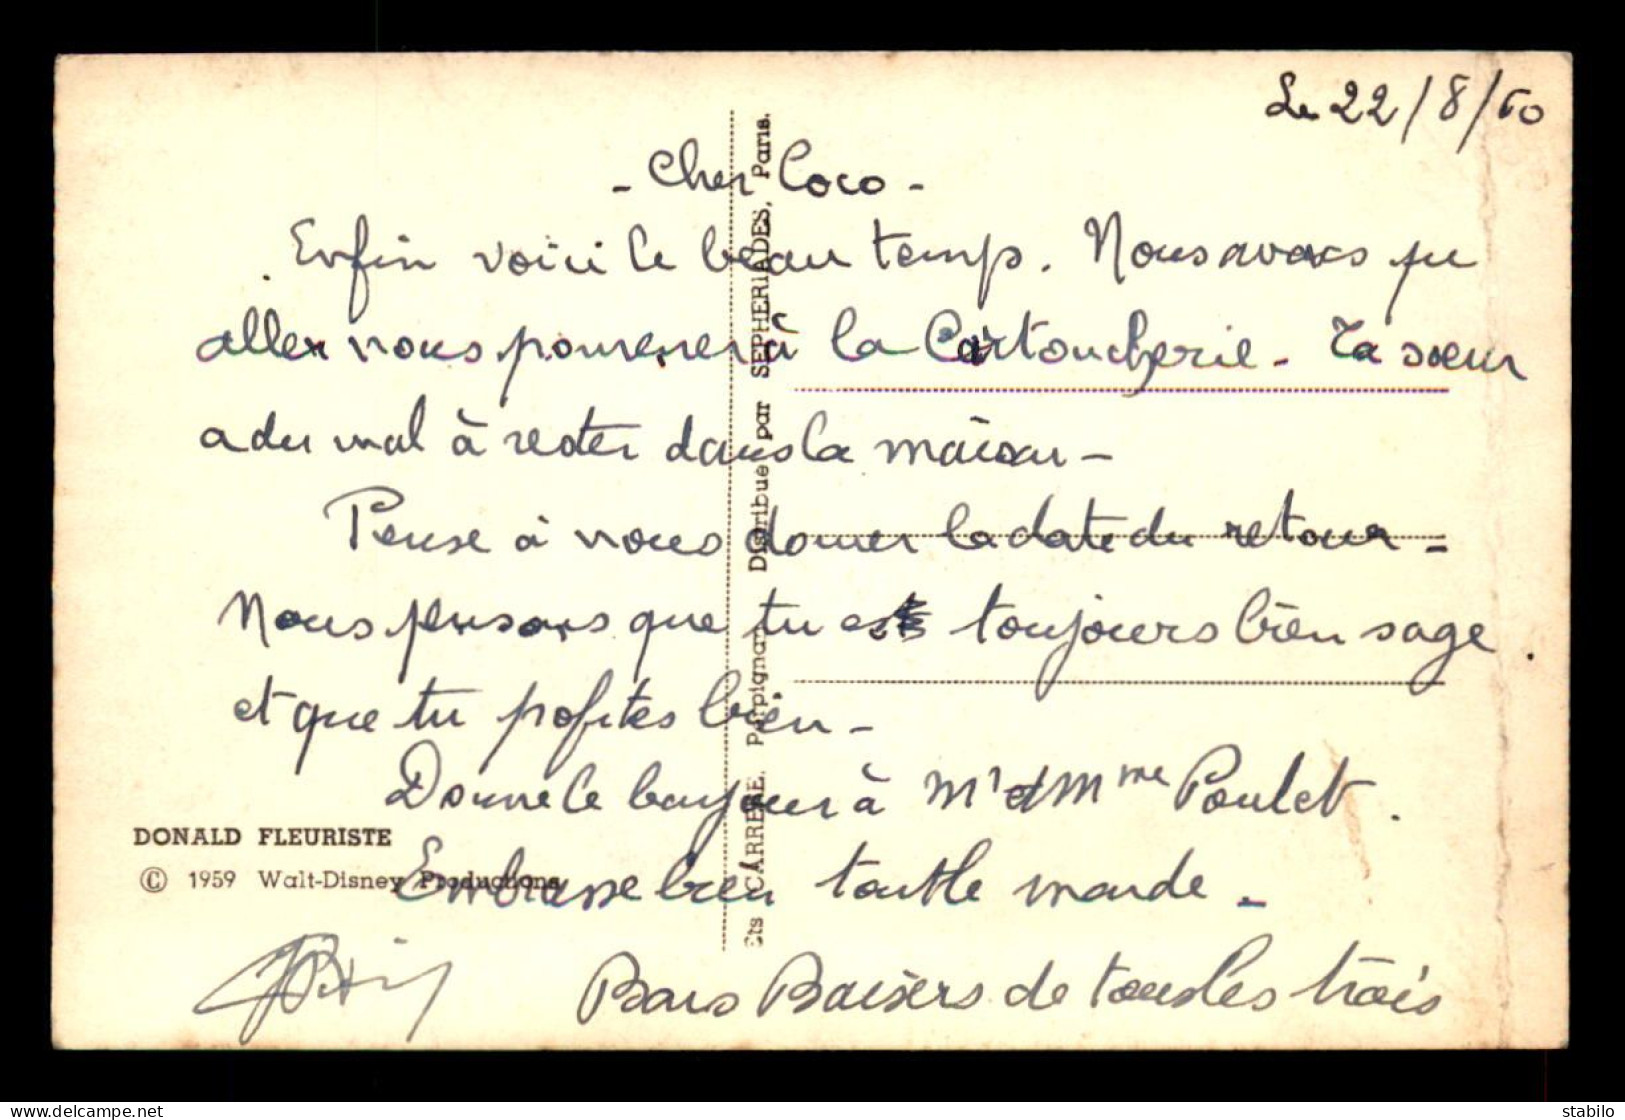 Le 22/8/60
- Cher Coco -
Enfin voici le beau temps. Nous avons pu
aller nous pomener à la Cartoucherie - Ta soeur
a du mal à rester dans la maison -
Pense à nous donner la date du retour -
Nous pensons que tu es toujours bien sage
et que tu profites bien -
Donne le bonjour à Mr et Mme Poulet.
Embrasse bien tout le monde -
Bons Baisers de tous les trois
DONALD FLEURISTE
© 1959 Walt-Disney Productions
Ets CARRERE. Perpignan Distribue par SEPHERIADES, Paris.
stabilo
www.delcampe.net